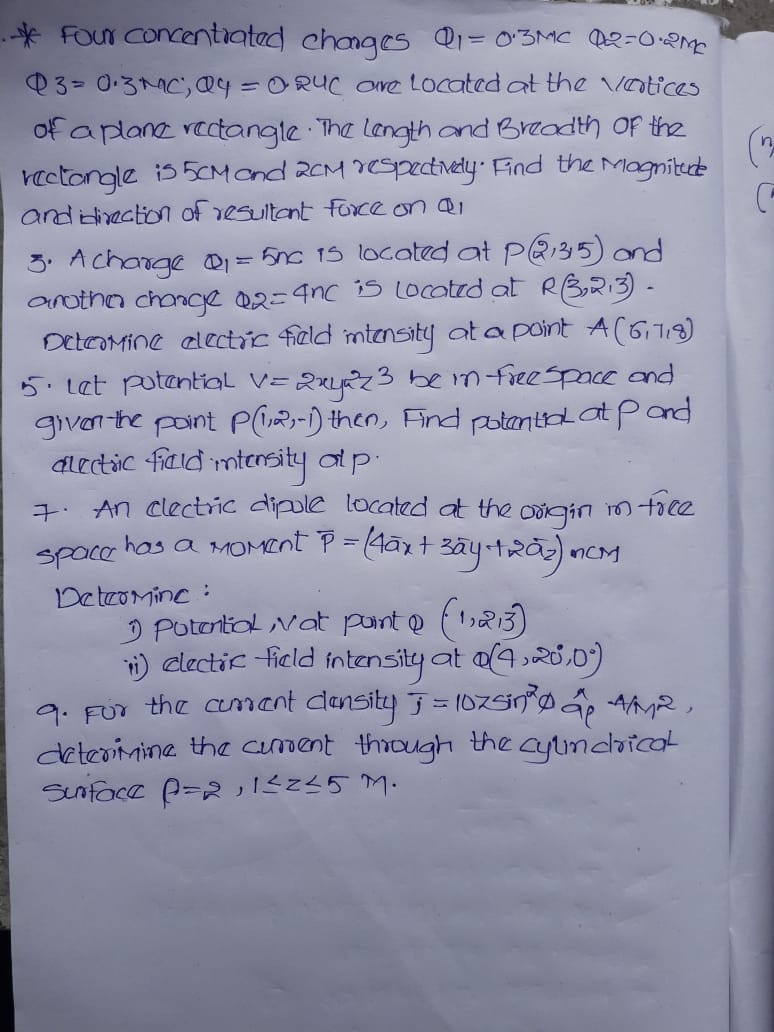 * Four concentrated charges Q1 = 0.3MC Q2=0.2MC
Q3= 0.3MC, Q4 = 0.2UC are located at the vertices
of a plane rectangle. The length and Breadth of the
rectangle is 5CM and 2CM respectively. Find the Magnitude
and direction of resultant force on Q1
3. A charge Q1 = 5nc is located at P(2,3,5) and
another charge Q2= 4nc is located at R(3,2,3).
Determine electric field intensity at a point A(6,7,8)
5. Let potential V= 2xy²z3 be in free space and
given the point P(1,2,-1) then, Find potential at P and
electric field intensity at p.
7. An electric dipole located at the origin in free
space has a MOMENT P̄ = (4āx + 3āy + 2āz) nCM
Determine :
i) Potential, V at point Q (1,2,3)
ii) electric field intensity at Q(4,20°,0°)
9. For the current density J̄ = 10zsin²Ø âρ A/M2,
determine the current through the cylindrical
surface ρ=2 , 1≤z≤5 M.
(
(